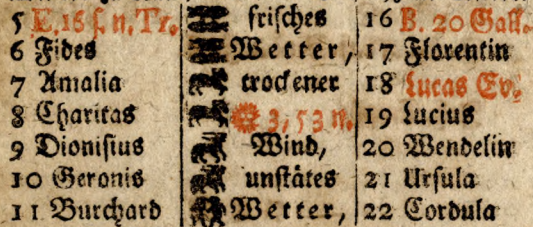 5 E. 18 ſ. n. Tr. friſches 16 B. 20 Gall.
6 Fides Wetter, 17 Florentin
7 Amalia trockener 18 Lucas Ev.
8 Charitas 3, 53 n. 19 Lucius
9 Dioniſius Wind, 20 Wendelin
10 Geronis unſtätes 21 Urſula
11 Burchard Wetter, 22 Cordula